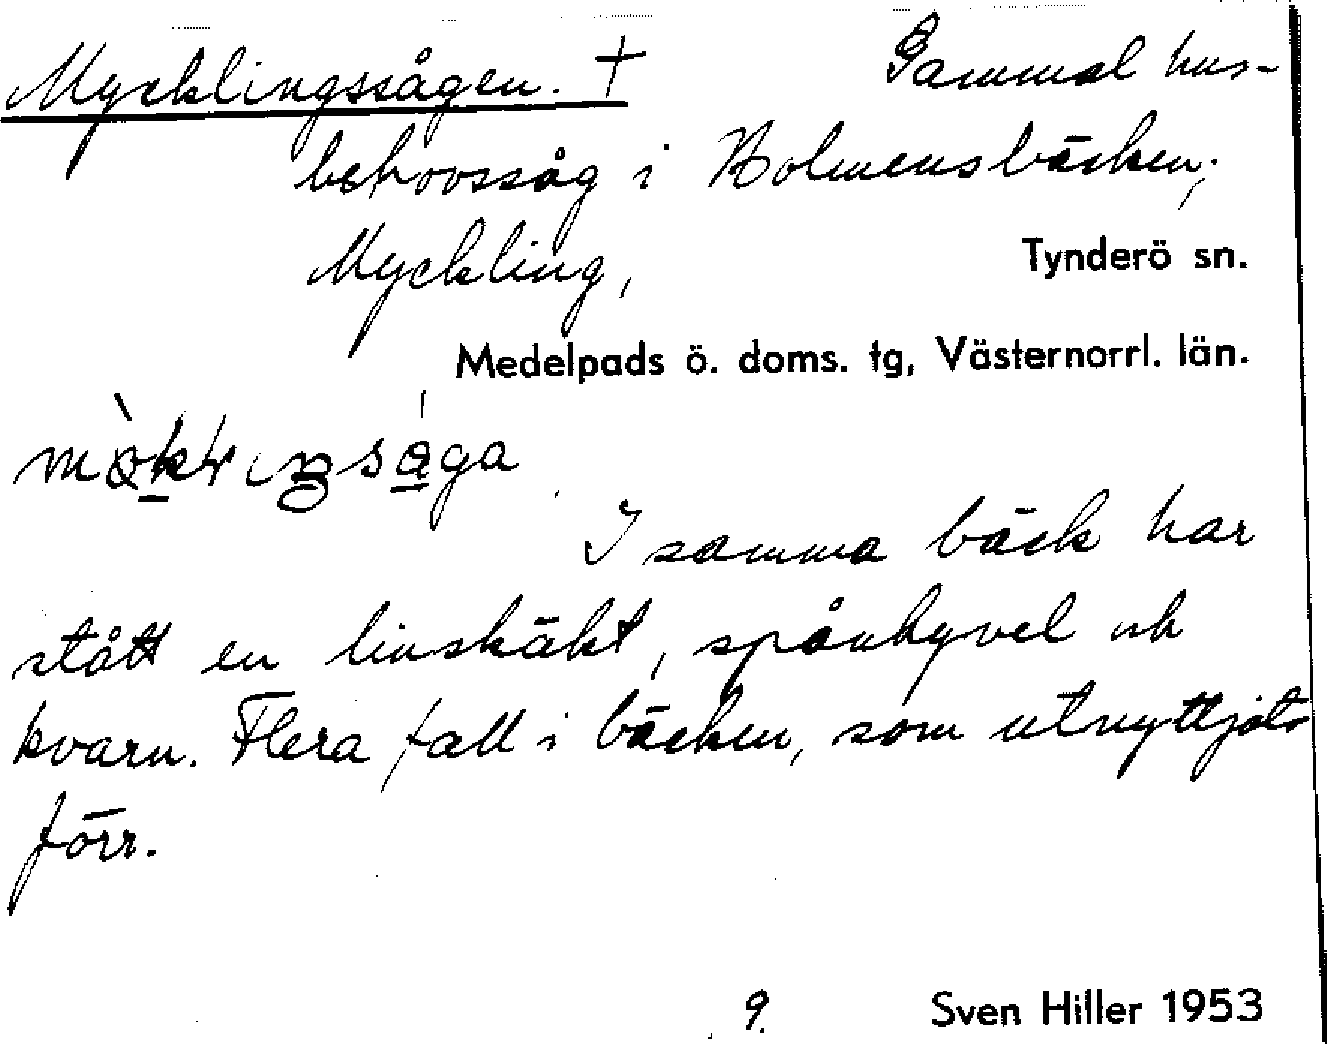 Mycklingssågen. † Gammal hus-
behovssåg i Holmensbäcken;
Myckling, Tynderö sn.
Medelpads ö. doms. tg, Västernorrl. län.
I samma bäck har
stått en linskäkt, spånhyvel och
kvarn. Flera fall i bäcken, som utnyttjats
förr.
9. Sven Hiller 1953